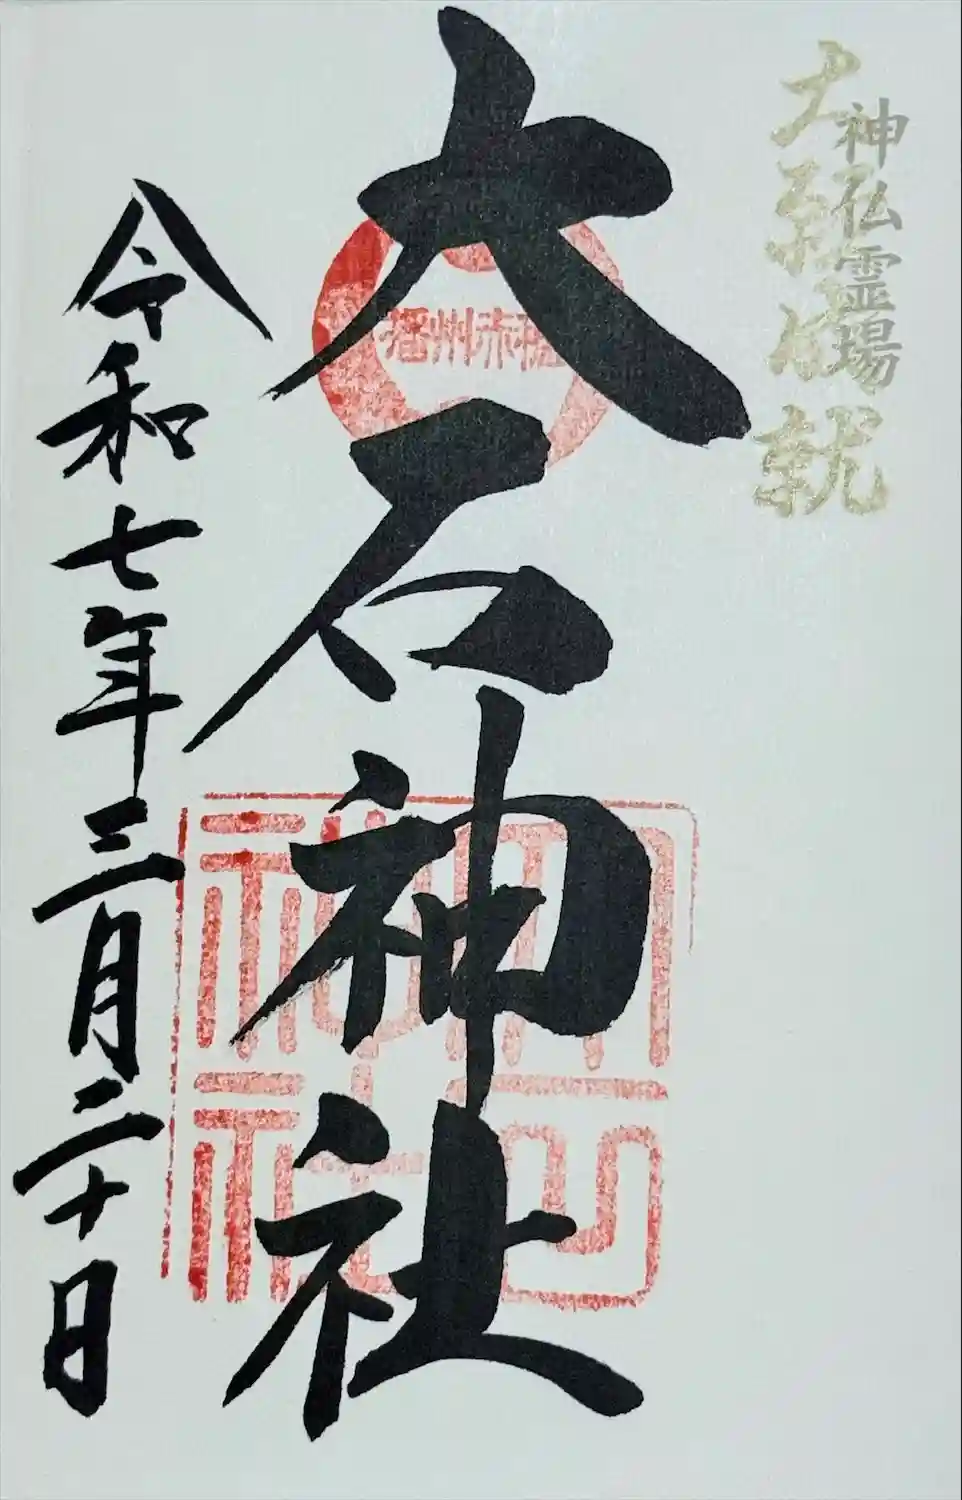 神仏霊場
大願成就
播州赤穂
大石神社
大石神社
令和七年三月二十日